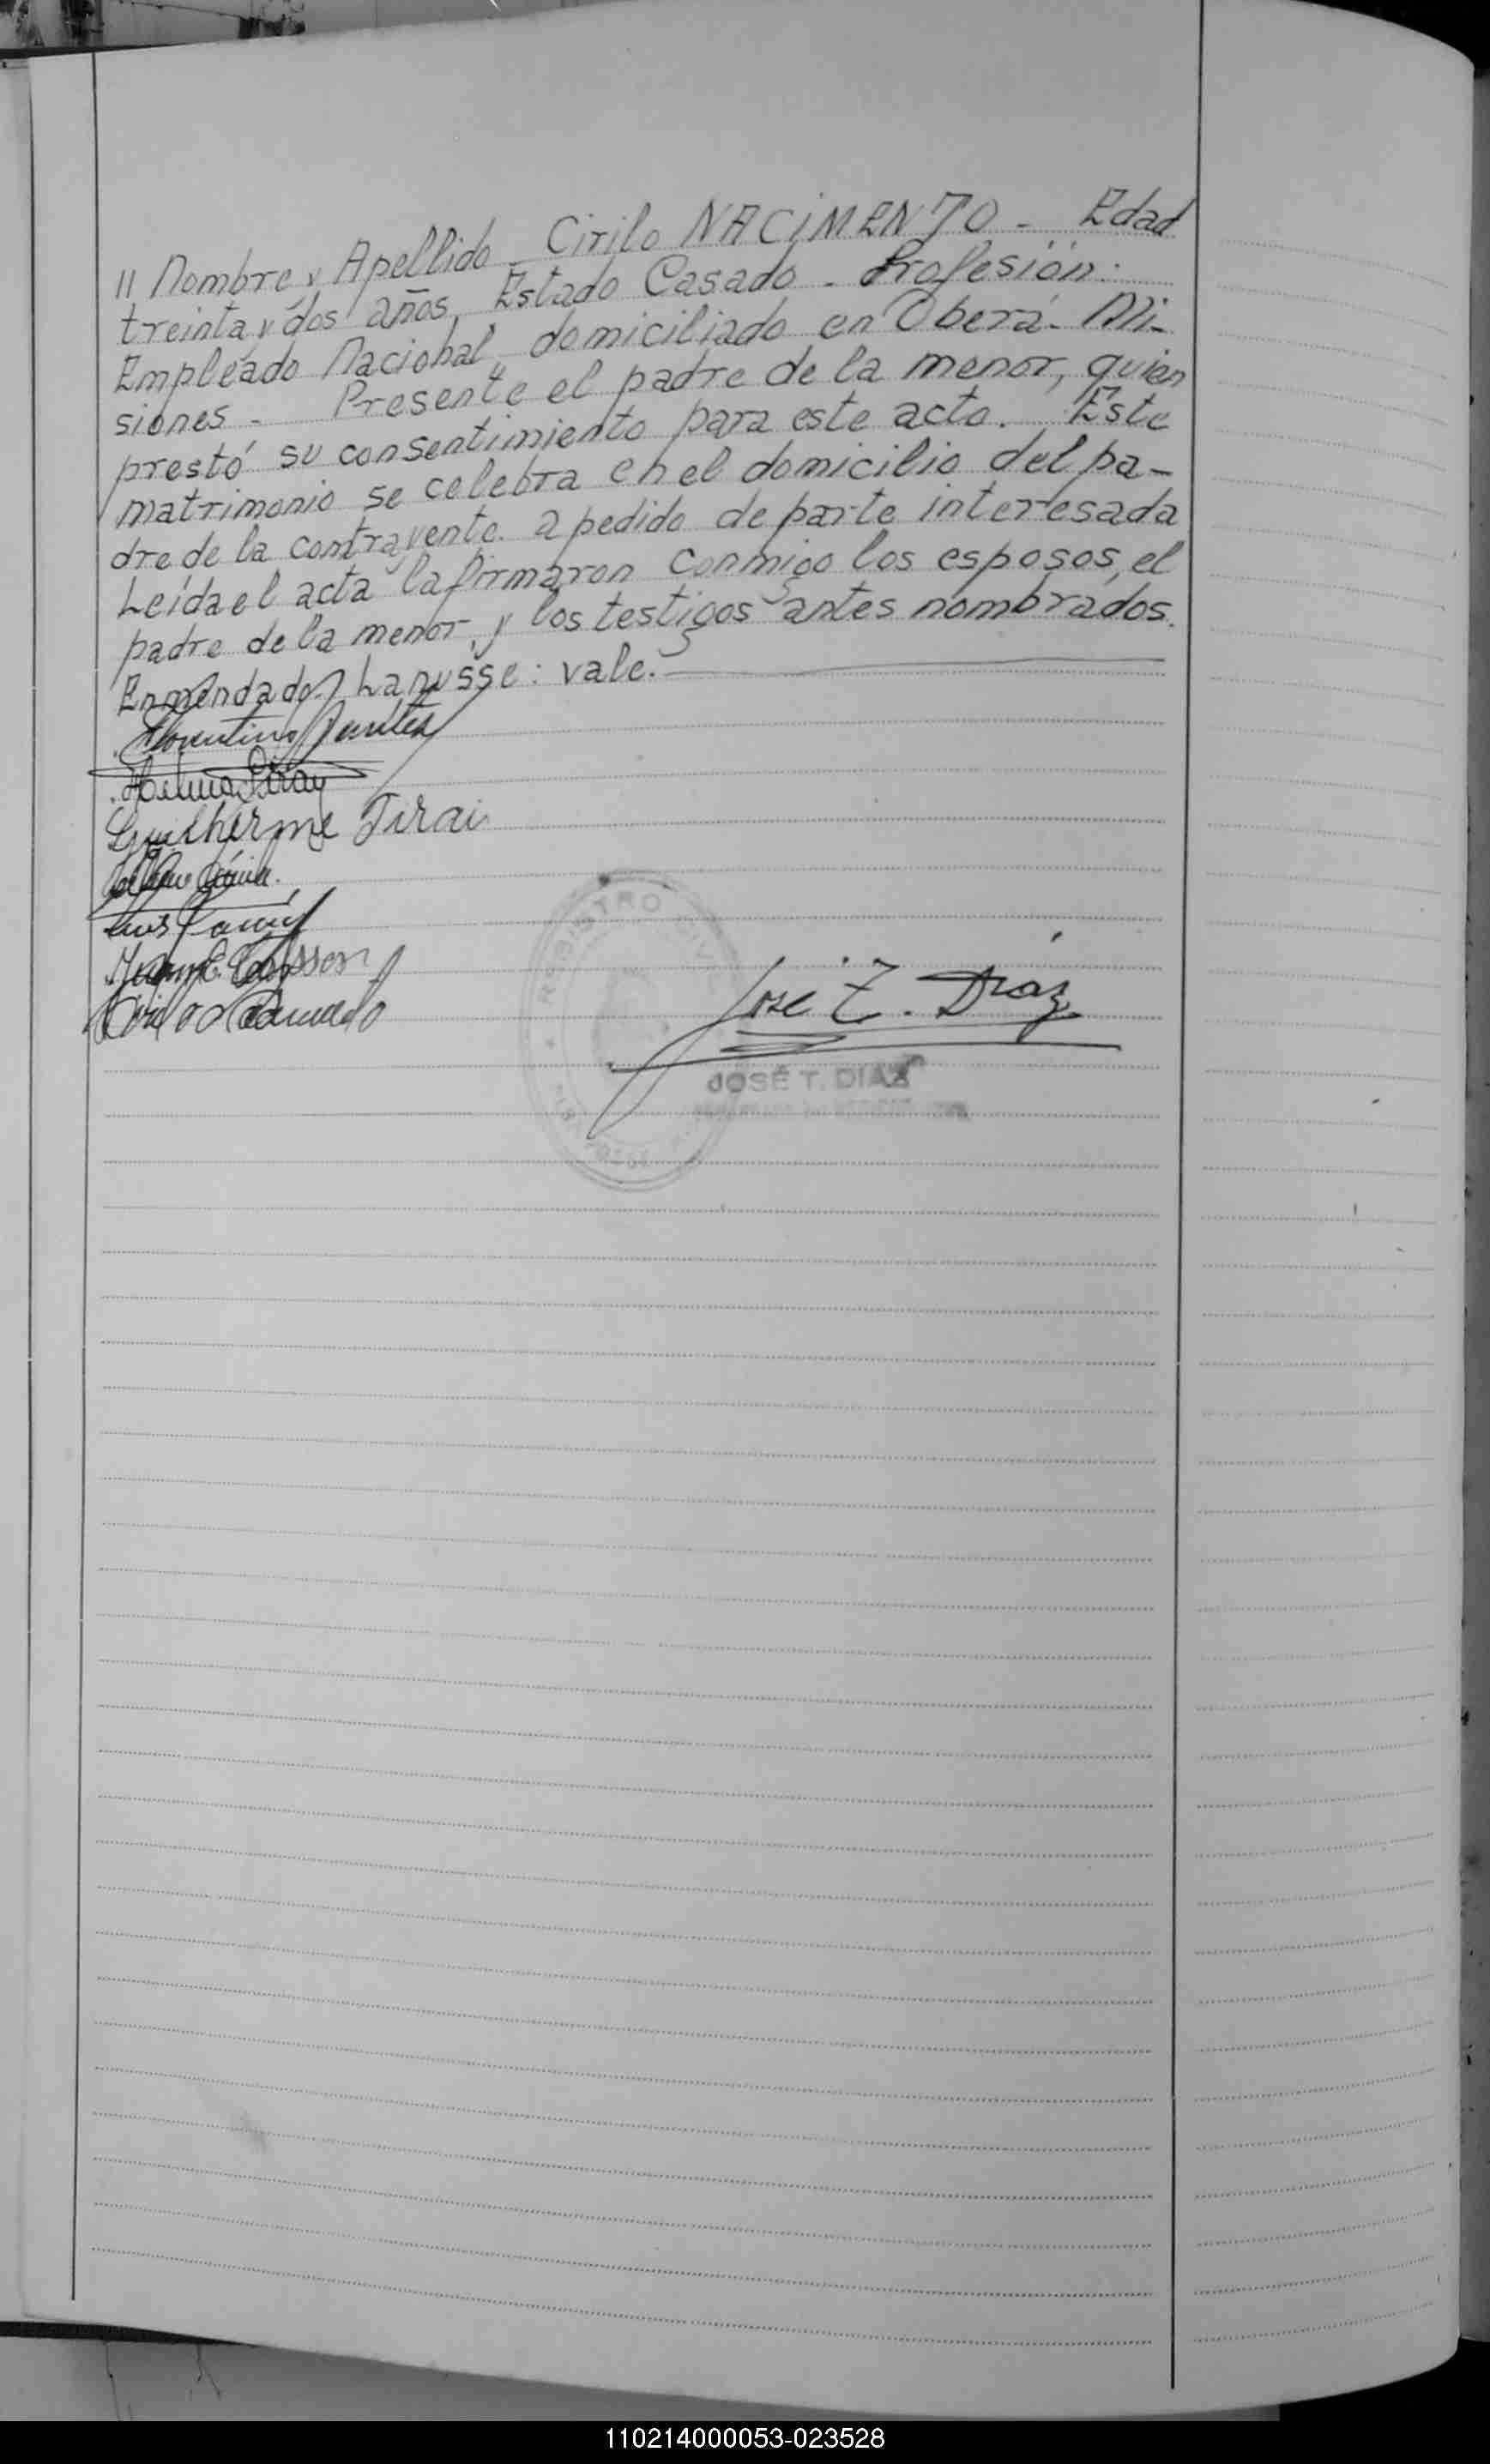 11 Nombre y Apellido - Cirilo NACIMENTO - Edad
treinta y dos años, Estado Casado - Profesión:
Empleado Nacional, domiciliado en Oberá - Mi-
siones - Presente el padre de la menor, quien
prestó su consentimiento para este acto. Este
matrimonio se celebra en el domicilio del pa-
dre de la contrayente. a pedido de parte interesada
Leída el acta la firmaron conmigo los esposos, el
padre de la menor, y los testigos antes nombrados.
Enmendado: Lanusse: vale.
Florentino
Guilherme Tirai
Luis
José T. Diaz
REGISTRO CIVIL
JOSÉ T. DIAZ
110214000053-023528